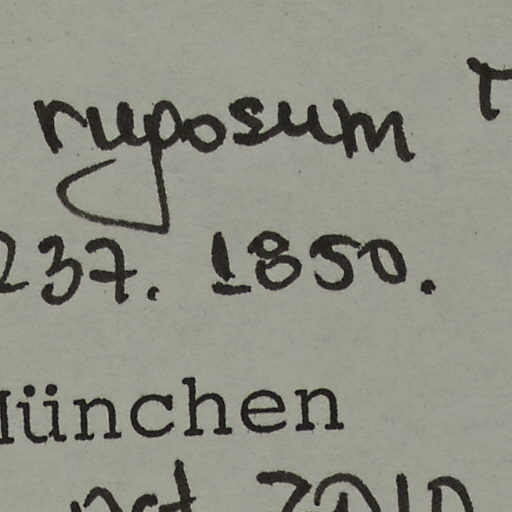 rugosum
237. 1850.
München